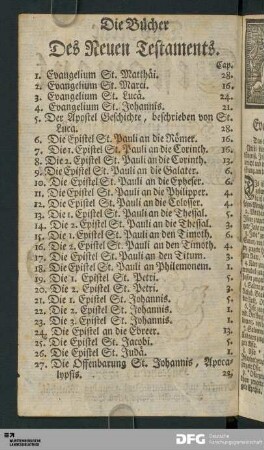 Die Bücher
Des Neuen Testaments.
Cap.
1. Evangelium St. Matthäi. 28.
2. Evangelium St. Marci. 16.
3. Evangelium St. Lucä. 24.
4. Evangelium St. Johannis. 21.
5. Der Apostel Geschichte, beschrieben von St.
Luca. 28.
6. Die Epistel St. Pauli an die Römer. 16.
7. Die 1. Epistel St. Pauli an die Corinth. 16.
8. Die 2. Epistel St. Pauli an die Corinth. 13.
9. Die Epistel St. Pauli an die Galater. 6.
10. Die Epistel St. Pauli an die Epheser. 6.
11. Die Epistel St. Pauli an die Philipper. 4.
12. Die Epistel St. Pauli an die Colosser. 4.
13. Die 1. Epistel St. Pauli an die Thessal. 5.
14. Die 2. Epistel St. Pauli an die Thessal. 3.
15. Die 1. Epistel St. Pauli an den Timoth. 6.
16. Die 2. Epistel St. Pauli an den Timoth. 4.
17. Die Epistel St. Pauli an den Titum. 3.
18. Die Epistel St. Pauli an Philemonem. 1.
19. Die 1. Epistel St. Petri. 5.
20. Die 2. Epistel St. Petri. 3.
21. Die 1. Epistel St. Johannis. 5.
22. Die 2. Epistel St. Johannis. 1.
23. Die 3. Epistel St. Johannis. 1.
24. Die Epistel an die Ebreer. 13.
25. Die Epistel St. Jacobi. 5.
26. Die Epistel St. Judä. 1.
27. Die Offenbarung St. Johannis, Apoca-
lypsis. 22.
DFG